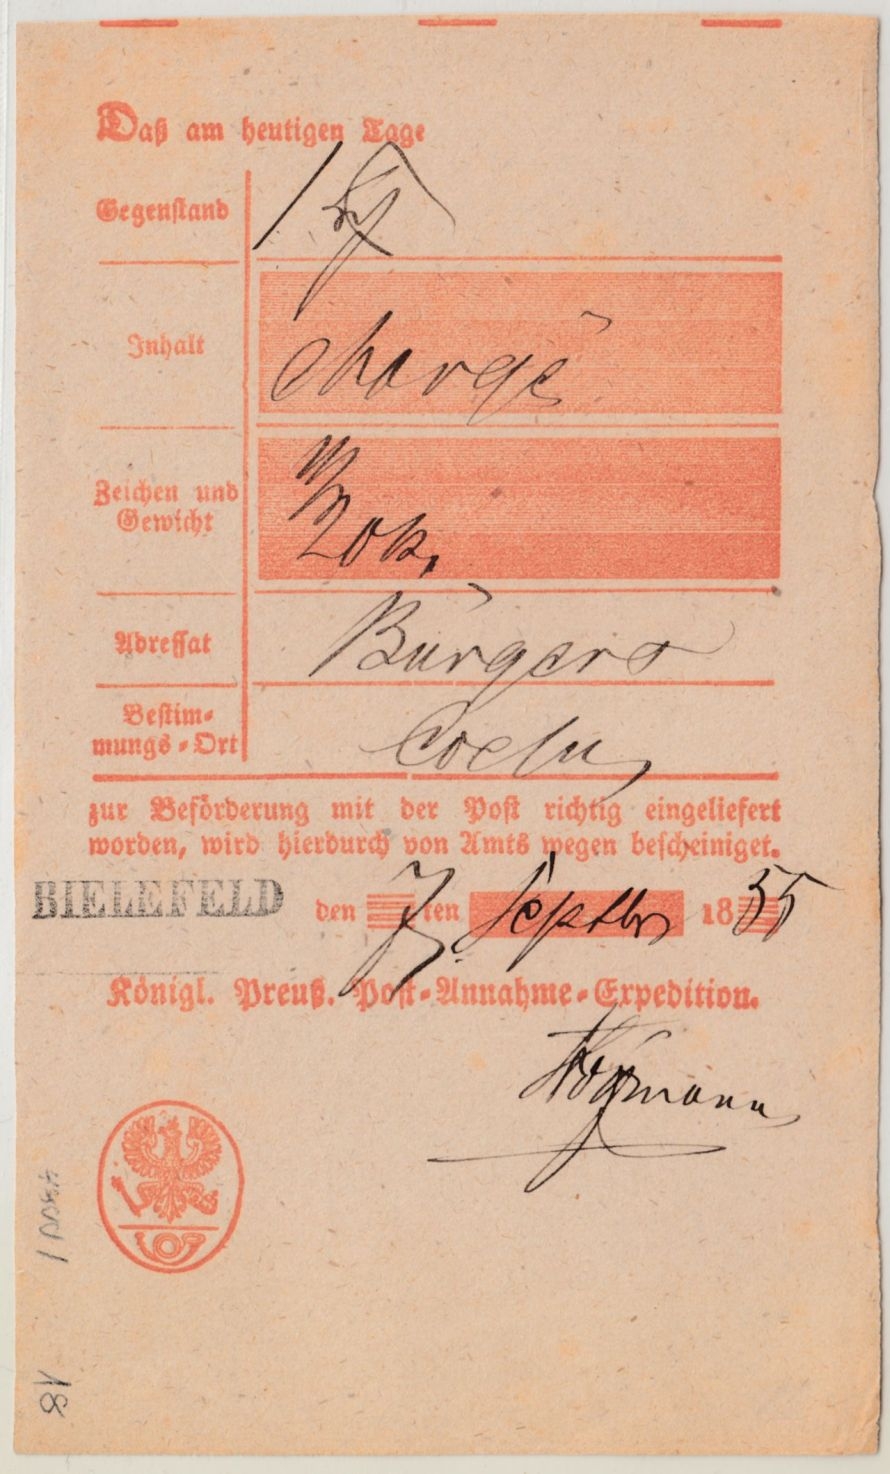 Daß am heutigen Tage
Gegenstand
1
Inhalt
chargé
Zeichen und
Gewicht
Adressat
Bürgers
Bestim-
mungs-Ort
Coeln
zur Beförderung mit der Post richtig eingeliefert
worden, wird hierdurch von Amts wegen bescheiniget.
BIELEFELD
den 7 ten Septbr 1855
Königl. Preuß. Post-Annahme-Expedition.
18